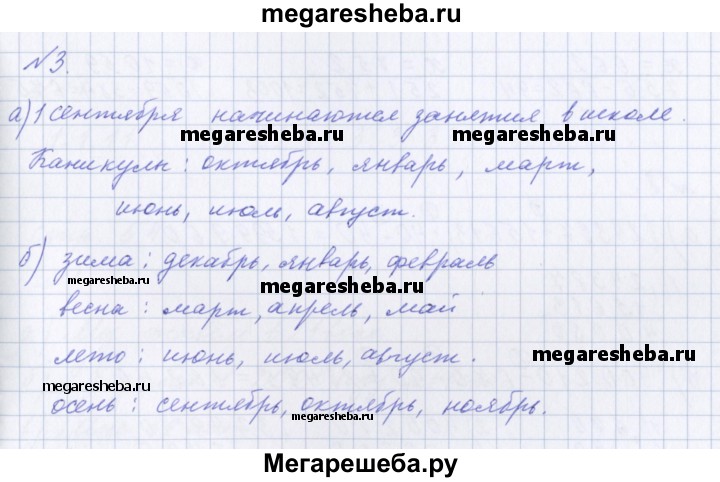 megaresheba.ru
№3.
а) 1 сентября начинаются занятия в школе.
megaresheba.ru
megaresheba.ru
Каникулы: октябрь, январь, март,
июнь, июль, август.
б) зима: декабрь, январь, февраль
megaresheba.ru
megaresheba.ru
весна: март, апрель, май
лето: июнь, июль, август.
megaresheba.ru
megaresheba.ru
осень: сентябрь, октябрь, ноябрь.
megaresheba.ru
Мегарешеба.ру